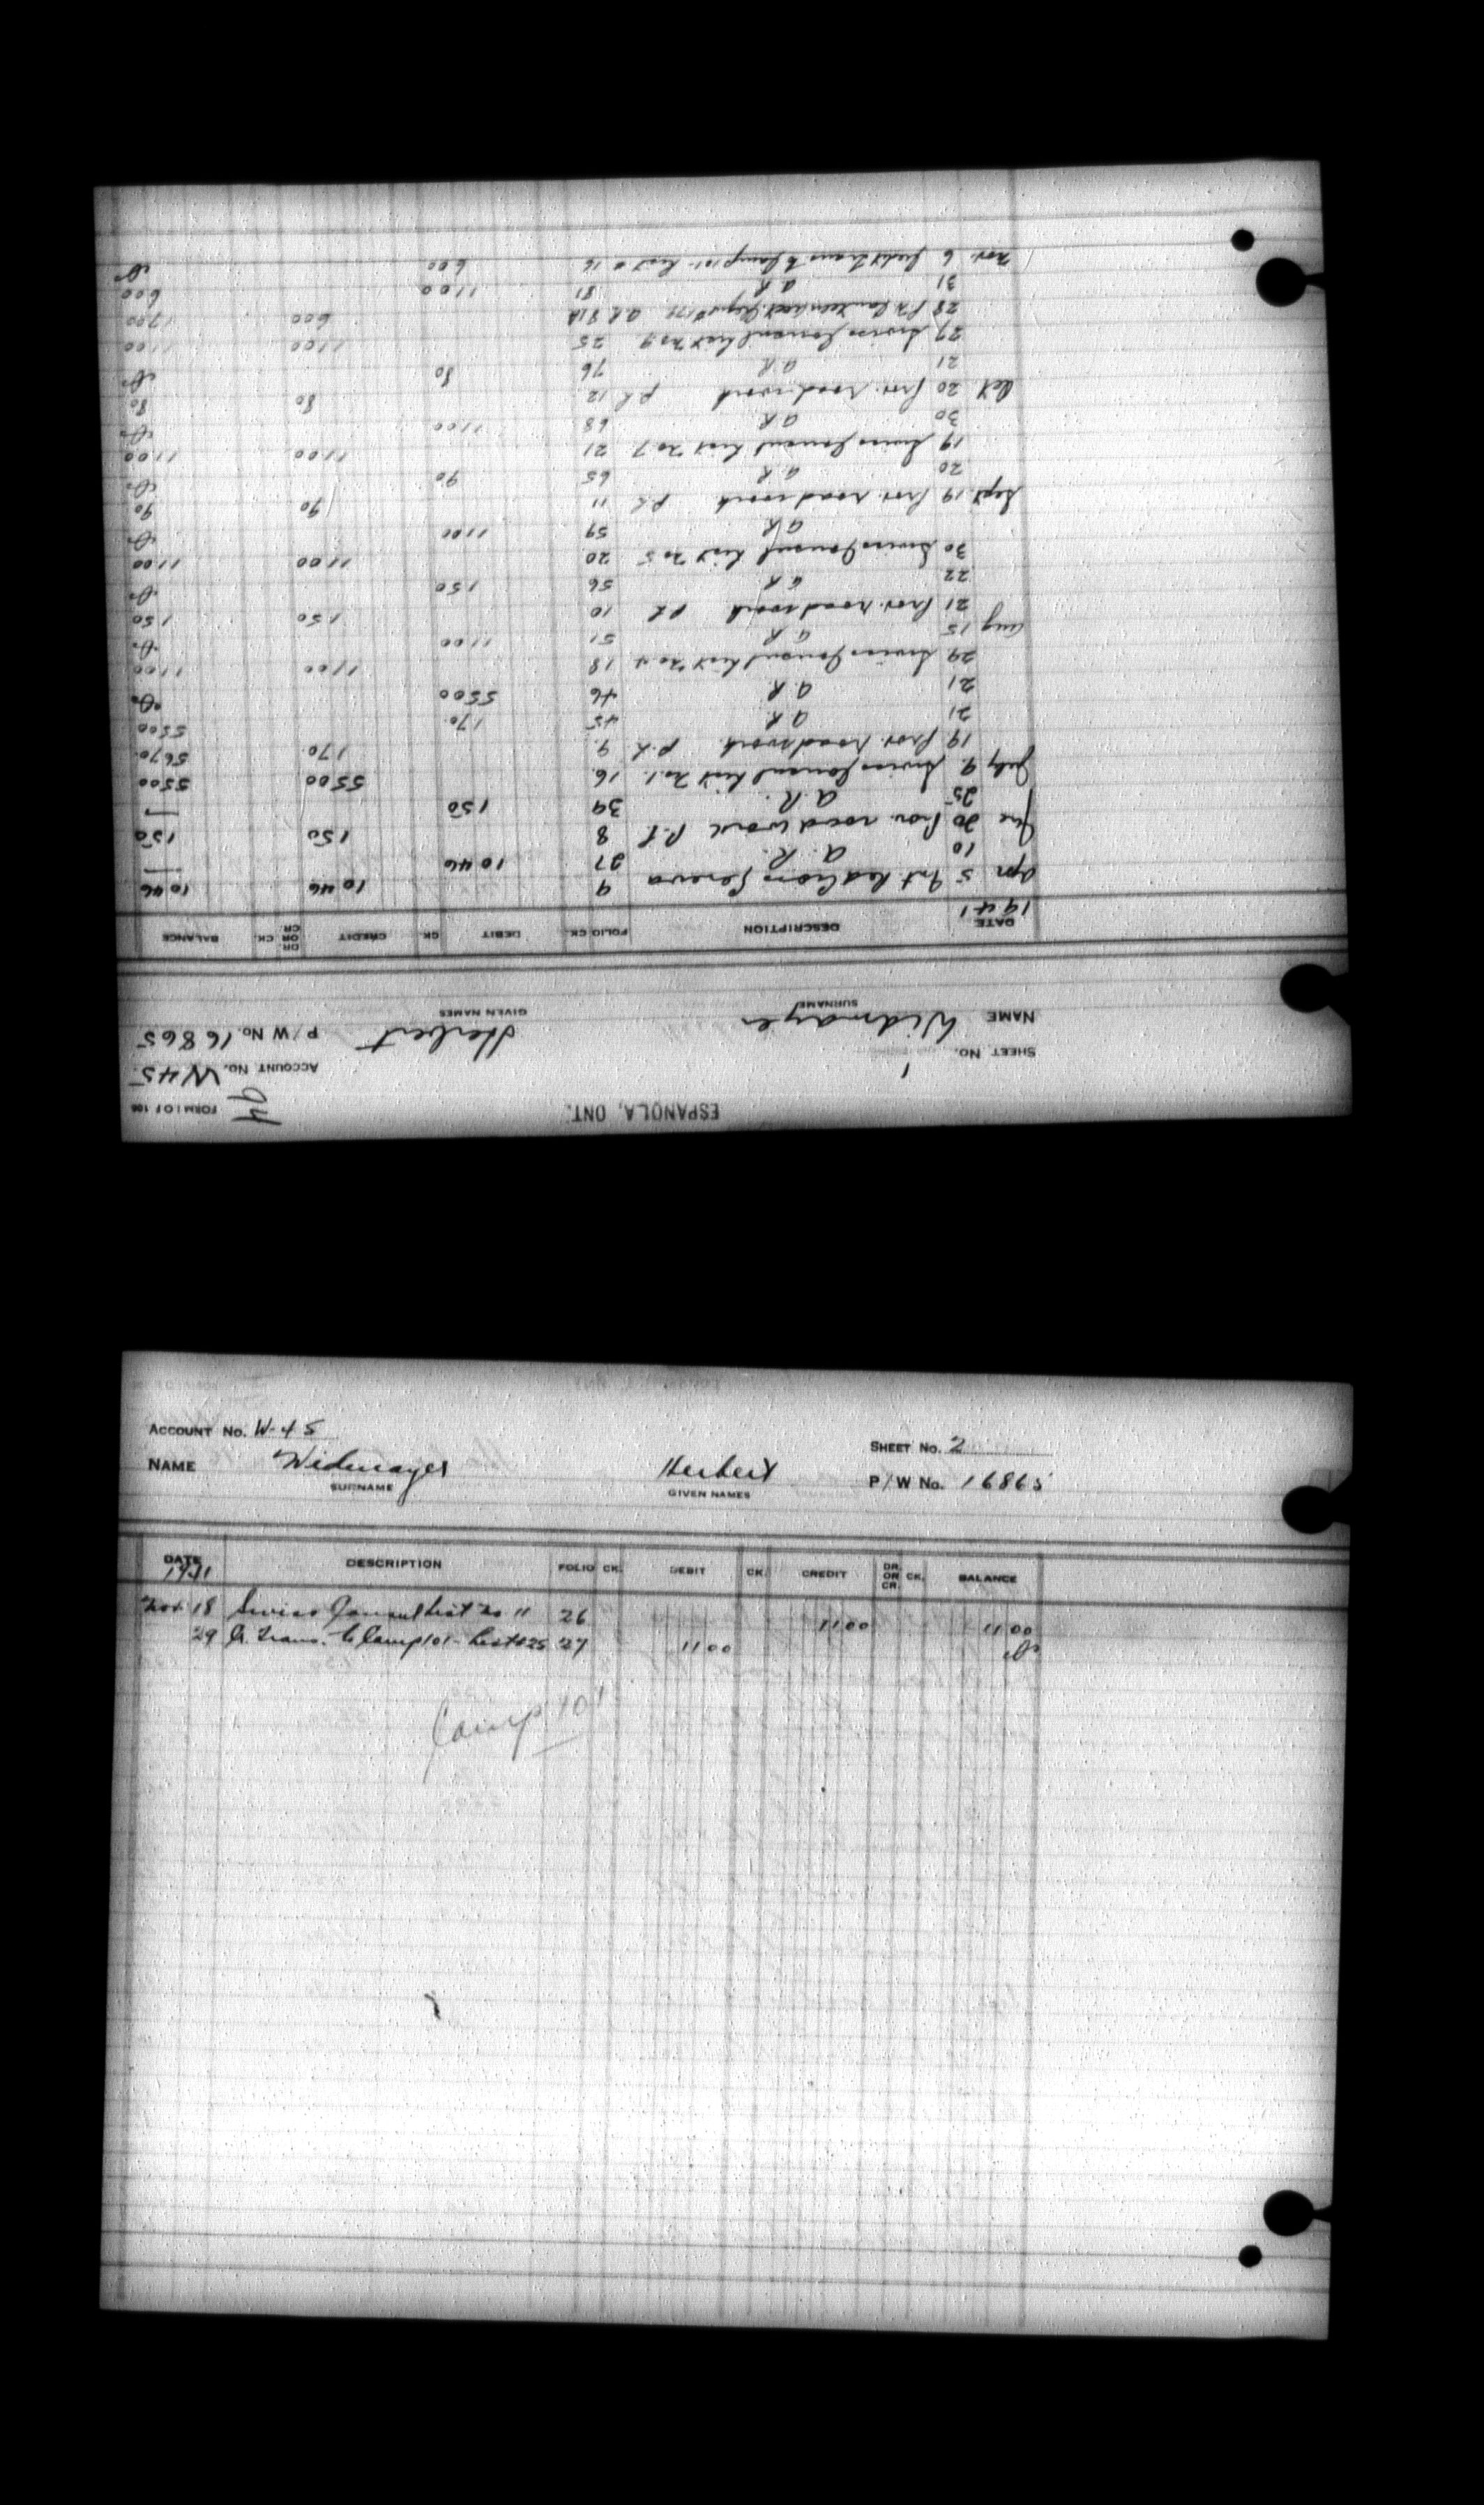 ESPANOLA, ONT.
FORM 1 OF 106
94
SHEET NO. 1
ACCOUNT NO. W45
NAME Widmayer Herbert P/W No. 16865
SURNAME GIVEN NAMES
DATE DESCRIPTION FOLIO CK. DEBIT CK. CREDIT DR. OR CR. CK. BALANCE
1941
Apr 5 Int. Red Cross Geneva 9 1046 1046
10 A.R. 27 1046 —
June 20 Prov. road work P.L 8 150 150
25 A.R. 39 150 —
July 9 Swiss Consul List No 1. 16 5500 5500
19 Prov. road work P.L 9 170 5670
21 A.R. 45 170 5500
21 A.R. 46 5500
29 Swiss Consul List No 4 18 1100 1100
Aug 15 A R 51 1100
21 Prov. road work P L 10 150 150
22 A R 56 150
30 Swiss Consul List No 5 20 1100 1100
A R 59 1100
Sept. 19 Prov. road work P.L 11 90 90
20 A R 65 90
19 Swiss Consul List No 7 21 1100 1100
30 A R 68 1100
Oct 20 Prov. road work P L 12 80 80
21 A.R. 76 80
27 Swiss Consul List No 9 25 1100 1100
28 81A 600 1700
31 A R 81 1100 600
Nov. 6 Credit Trans to Camp 101 - List # 16 16 600
ACCOUNT No. W-45
SHEET No. 2
NAME Widmayer Herbert P/W No. 16865
SURNAME GIVEN NAMES
DATE DESCRIPTION FOLIO CK. DEBIT CK. CREDIT DR. OR CR. CK. BALANCE
1941
Nov 18 Swiss Consul List No 11 26 1100 1100
29 Cr. Trans. to Camp 101 - List #25 27 1100
Camp 101